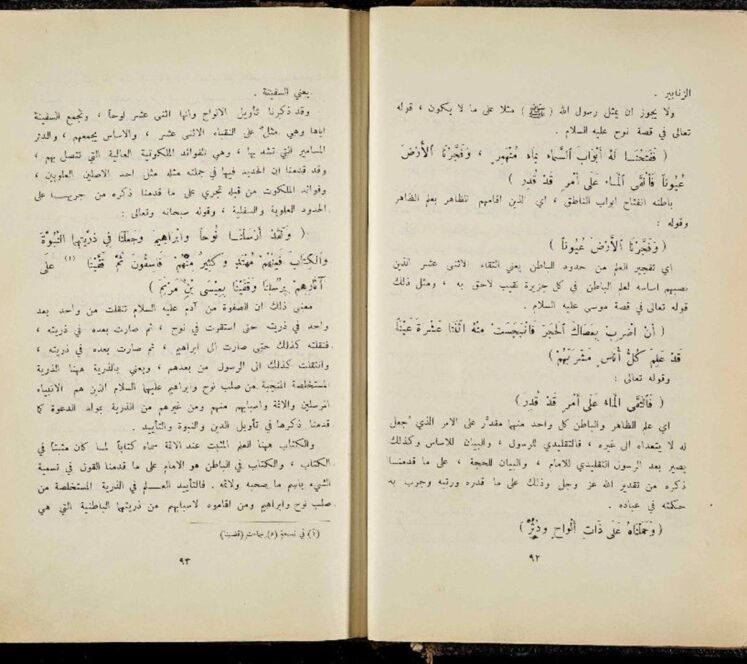 الزنابير .
ولا يجوز ان يمثل رسول الله (ﷺ) مثلا على ما لا يكون ، قوله
تعالى في قصة نوح عليه السلام .
( فَفَتَحْنَا لَهُ أَبْوَابَ السَّمَاءِ بِمَاءٍ مُنْهَمِرٍ ، وَفَجَّرْنَا الْأَرْضَ
عُيُونًا فَالْتَقَى الْمَاءُ عَلَى أَمْرٍ قَدْ قُدِرَ )
باطنه انفتاح ابواب الناطق ، اي الذين اقامهم للظاهر بعلم الظاهر
وقوله :
( وَفَجَّرْنَا الْأَرْضَ عُيُونًا )
اي تفجير العلم من حدود الباطن يعني النقباء الاثنى عشر الذين
نصبهم اساسه لعلم الباطن في كل جزيرة نقيب لاحق به ، ومثل ذلك
قوله تعالى في قصة موسى عليه السلام .
( أَنْ اضْرِبْ بِعَصَاكَ الْحَجَرَ فَانْبَجَسَتْ مِنْهُ اثْنَتَا عَشْرَةَ عَيْنًا
قَدْ عَلِمَ كُلُّ أُنَاسٍ مَشْرَبَهُمْ )
وقوله تعالى :
( فَالْتَقَى الْمَاءُ عَلَى أَمْرٍ قَدْ قُدِرَ )
اي علم الظاهر والباطن كل واحد منهما مقدَّر على الامر الذي جُعل
له لا يتعداه الى غيره ، فالتقليدي للرسول ، والبيان للاساس وكذلك
يصير بعد الرسول التقليدي للامام ، والبيان للحجة ، على ما قدمنا
ذكره من تقدير الله عز وجل وذلك على ما قدره ورتبه وجرب به
حكمته في عباده .
( وَحَمَلْنَاهُ عَلَى ذَاتِ أَلْوَاحٍ وَدُسُرٍ )
٩٢
يعني السفينة .
وقد ذكرنا تأويل الالواح وانها اثنى عشر لوحاً ، وتجمع السفينة
اياها وهي مثلٌ على النقباء الاثنى عشر ، والاساس يجمعهم ، والدثر
المسامير التي تشد بها ، وهي الفوائد الملكوتية العالية التي تتصل بهم ،
وقد قدمنا ان الحديد فيها في جملته مثله مثل احد الاصلين العلويين ،
وفوائد الملكوت من قبله تجري على ما قدمنا ذكره من جريها على
الحدود العلوية والسفلية ، وقوله سبحانه وتعالى :
( وَلَقَدْ أَرْسَلْنَا نُوحًا وَابْرَاهِيمَ وَجَعَلْنَا فِي ذُرِّيَّتِهِمَا النُّبُوَّةَ
وَالْكِتَابَ فَمِنْهُمْ مُهْتَدٍ وَكَثِيرٌ مِنْهُمْ فَاسِقُونَ ثُمَّ قَفَّيْنَا (١) عَلَى
آثَارِهِمْ بِرُسُلِنَا وَقَفَّيْنَا بِعِيسَى بْنِ مَرْيَمَ )
معنى ذلك ان الصفوة من آدم عليه السلام تنقلت من واحد بعد
واحد في ذريته حتى استقرت في نوح ، ثم صارت بعده في ذريته ،
فتنقلته كذلك حتى صارت الى ابراهيم ، ثم صارت بعده في ذريته ،
وانتقلت كذلك الى الرسول من بعدهم ، ويعني بالذرية ههنا الذرية
المستخلصة المنجبة من صلب نوح وابراهيم عليهما السلام الذين هم الانبياء
المرسلين والائمة واسبابهم منهم ومن غيرهم من الذرية بولد الدعوة كما
قدمنا ذكرها في تأويل الدين والنبوة والتأييد .
والكتاب ههنا العلم المثبت عند الائمة سماه كتاباً لما كان مثبتاً في
الكتاب ، والكتاب في الباطن هو الامام على ما قدمنا القول في تسمية
الشيء باسم ما صحبه ولائمه . فالتأييد العلم في الذرية المستخلصة من
صلب نوح وابراهيم ومن اقاموه لاسبابهم من ذريتهما الباطنية التي هي
(١) في نسخة (م) جاءت (قفينا)
٩٣